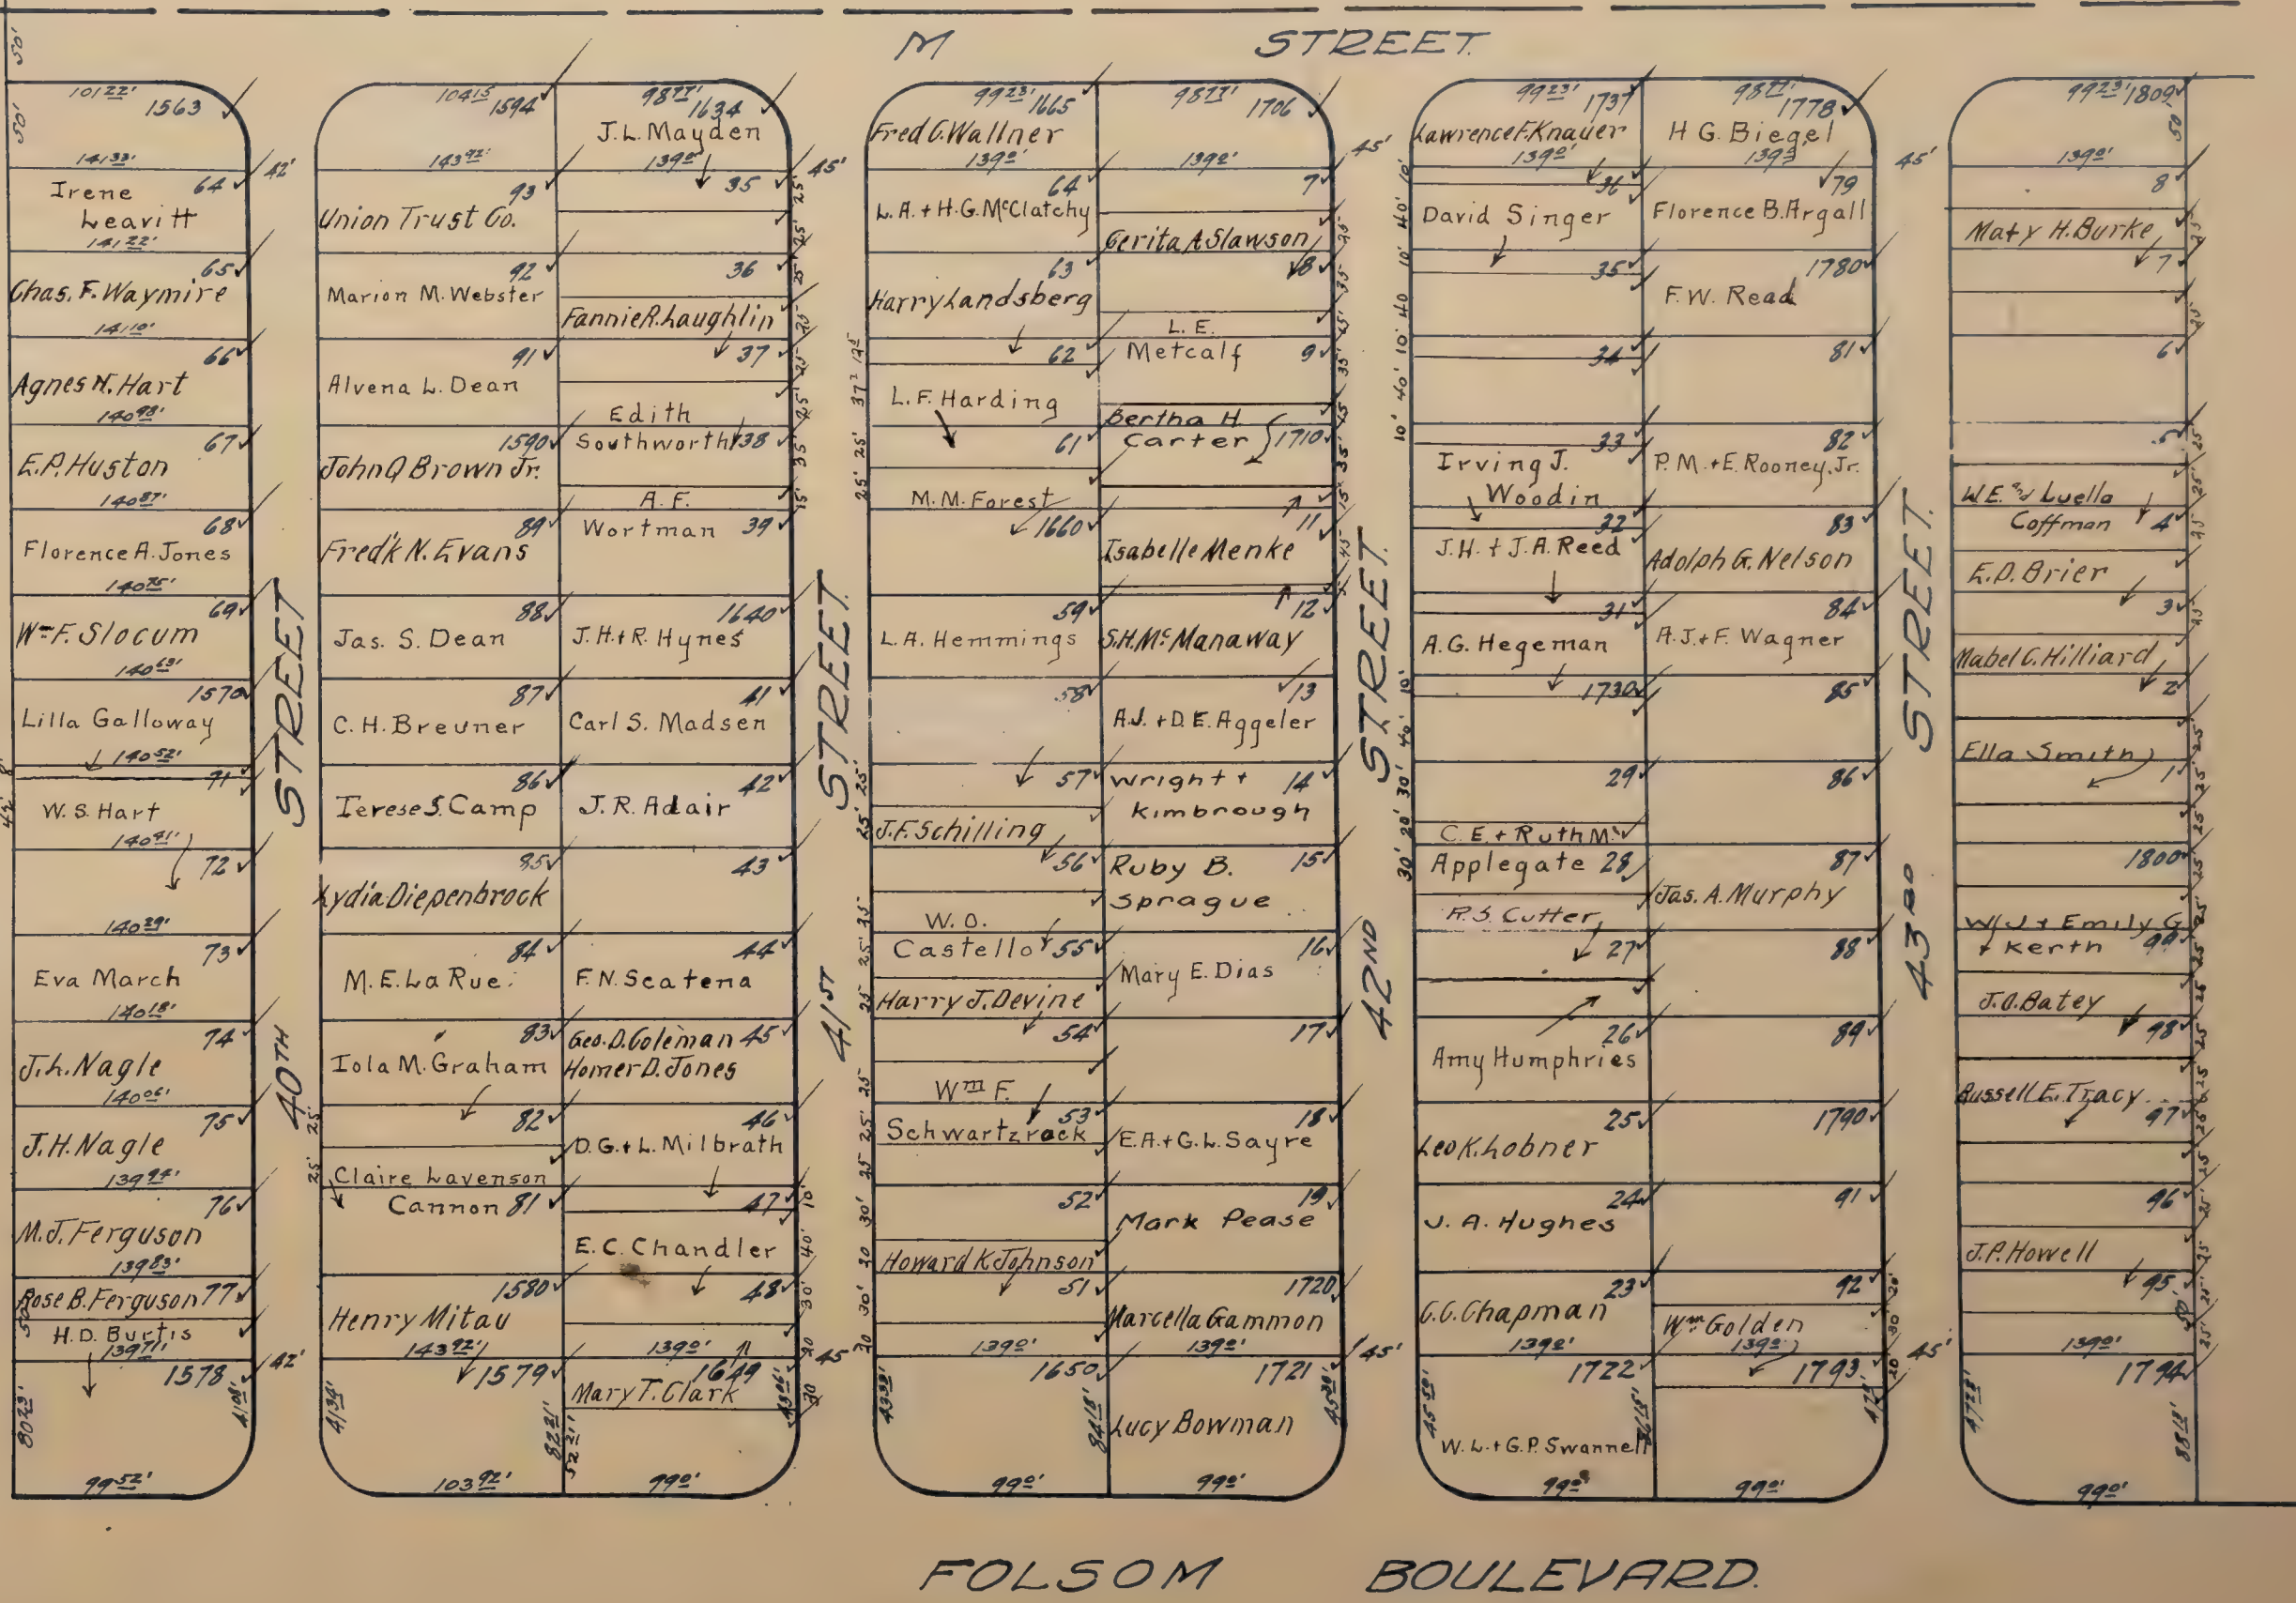 M STREET.
50'
50'
101 22'
1563
141 33'
42'
Irene
Leavitt
64
141 22'
65
Chas. F. Waymire
141 10'
66
Agnes N. Hart
140 98'
67
E.P. Huston
140 87'
68
Florence A. Jones
140 75'
69
Wm F. Slocum
140 63'
1570
Lilla Galloway
140 52'
71
42' 8'
W. S. Hart
140 41'
72
140 29'
73
Eva March
140 18'
74
J.L. Nagle
140 06'
75
J.H. Nagle
139 94'
76
M.J. Ferguson
139 83'
Rose B. Ferguson 77
50'
H.D. Burtis
139 71'
1578
42'
80 23'
41 08'
99 52'
40TH STREET
104 15
1594
143 92'
93
Union Trust Co.
92
Marion M. Webster
91
Alvena L. Dean
1590
John Q Brown Jr.
89
Fred'k N. Evans
88
Jas. S. Dean
87
C. H. Breuner
86
Terese S. Camp
85
Lydia Diepenbrock
84
M. E. La Rue.
83
Iola M. Graham
25'
82
25'
Claire Lavenson
Cannon 81
1580
Henry Mitau
143 92'
1579
41 34'
82 21'
103 92'
98 77'
1634
J. L. Mayden
139 0'
45'
35
25'
25'
36
25'
Fannie R. Laughlin
25'
37
25'
25'
Edith
Southworth 38
35'
A. F.
15'
Wortman 39
1640
J. H. + R. Hynes
41
Carl S. Madsen
42
J. R. Adair
43
44
F. N. Scatena
Geo. D. Coleman 45
Homer D. Jones
46
D. G. + L. Milbrath
47
10'
E. C. Chandler
40'
48
30'
139 0'
20
45'
1649
Mary T. Clark
30
52 21'
43 06'
99 0'
41ST STREET.
99 23'
1665
Fred C. Wallner
139 0'
64
L. A. + H. G. McClatchy
63
Harry Landsberg
62
37 12 5
L. F. Harding
61
25' 25'
M. M. Forest
1660
59
L. A. Hemmings
58
57
25' 25'
J. F. Schilling
56
W. O.
Castello 55
25' 25'
Harry J. Devine
25
54
Wm F.
25
Schwartzrock
53
25' 25
52
30'
20
Howard K Johnson
51
30'
20
139 0'
1650
43 39'
84 18'
99 0'
98 77'
1706
139 0'
45'
7
Gerita A Slawson
25'
8
35'
L. E.
45'
Metcalf 9
35'
Bertha H.
45
Carter 1710
35'
15'
11
Isabelle Menke
45'
12
S. H. McManaway
13
A. J. + D. E. Aggeler
Wright +
Kimbrough
14
Ruby B.
Sprague
15
16
Mary E. Dias
17
18
E. A. + G. L. Sayre
19
Mark Pease
1720
Marcella Gammon
139 0'
45'
1721
Lucy Bowman
99 0'
42ND STREET.
99 23'
1737
Lawrence F. Knauer
139 0'
10'
36
40'
David Singer
10'
35
40
10'
34
40'
10'
33
Irving J.
Woodin
32
J. H. + J. A. Reed
31
A. G. Hegeman
10'
1730
40'
29
30'
20'
C. E. + Ruth M.
Applegate 28
30'
R. S. Cutter
27
26
Amy Humphries
25
Leo K. Lobner
24
J. A. Hughes
23
C. C. Chapman
139 0'
1722
45 50'
86 15'
W. L. + G. P. Swannell
99 0'
98 77'
1778
H G. Biegel
139 0'
45'
79
Florence B. Argall
1780
F. W. Read
81
82
P. M. + E. Rooney, Jr.
83
Adolph G. Nelson
84
A. J. + F. Wagner
85
86
87
Jas. A. Murphy
88
89
1790
91
92
20'
Wm Golden
30'
139 0'
45'
1793
20'
99 0'
43RD STREET.
99 23'
1809
50'
139 0'
8
Maty H. Burke
25'
7
25'
6
5
25'
W. E. and Luella
25'
Coffman 4
25'
E. D. Brier
3
25'
Mabel C. Hilliard
2
25'
Ella Smith
1
25'
25'
1800
25'
W. J. + Emily G
Kerth 99
25'
25
J. O. Batey
25
98
25
Russell E. Tracy
25
97
25
25
96
25'
J. P. Howell
25
95
25'
50'
139 0'
25'
1794
47 28'
88 18'
99 0'
FOLSOM BOULEVARD.